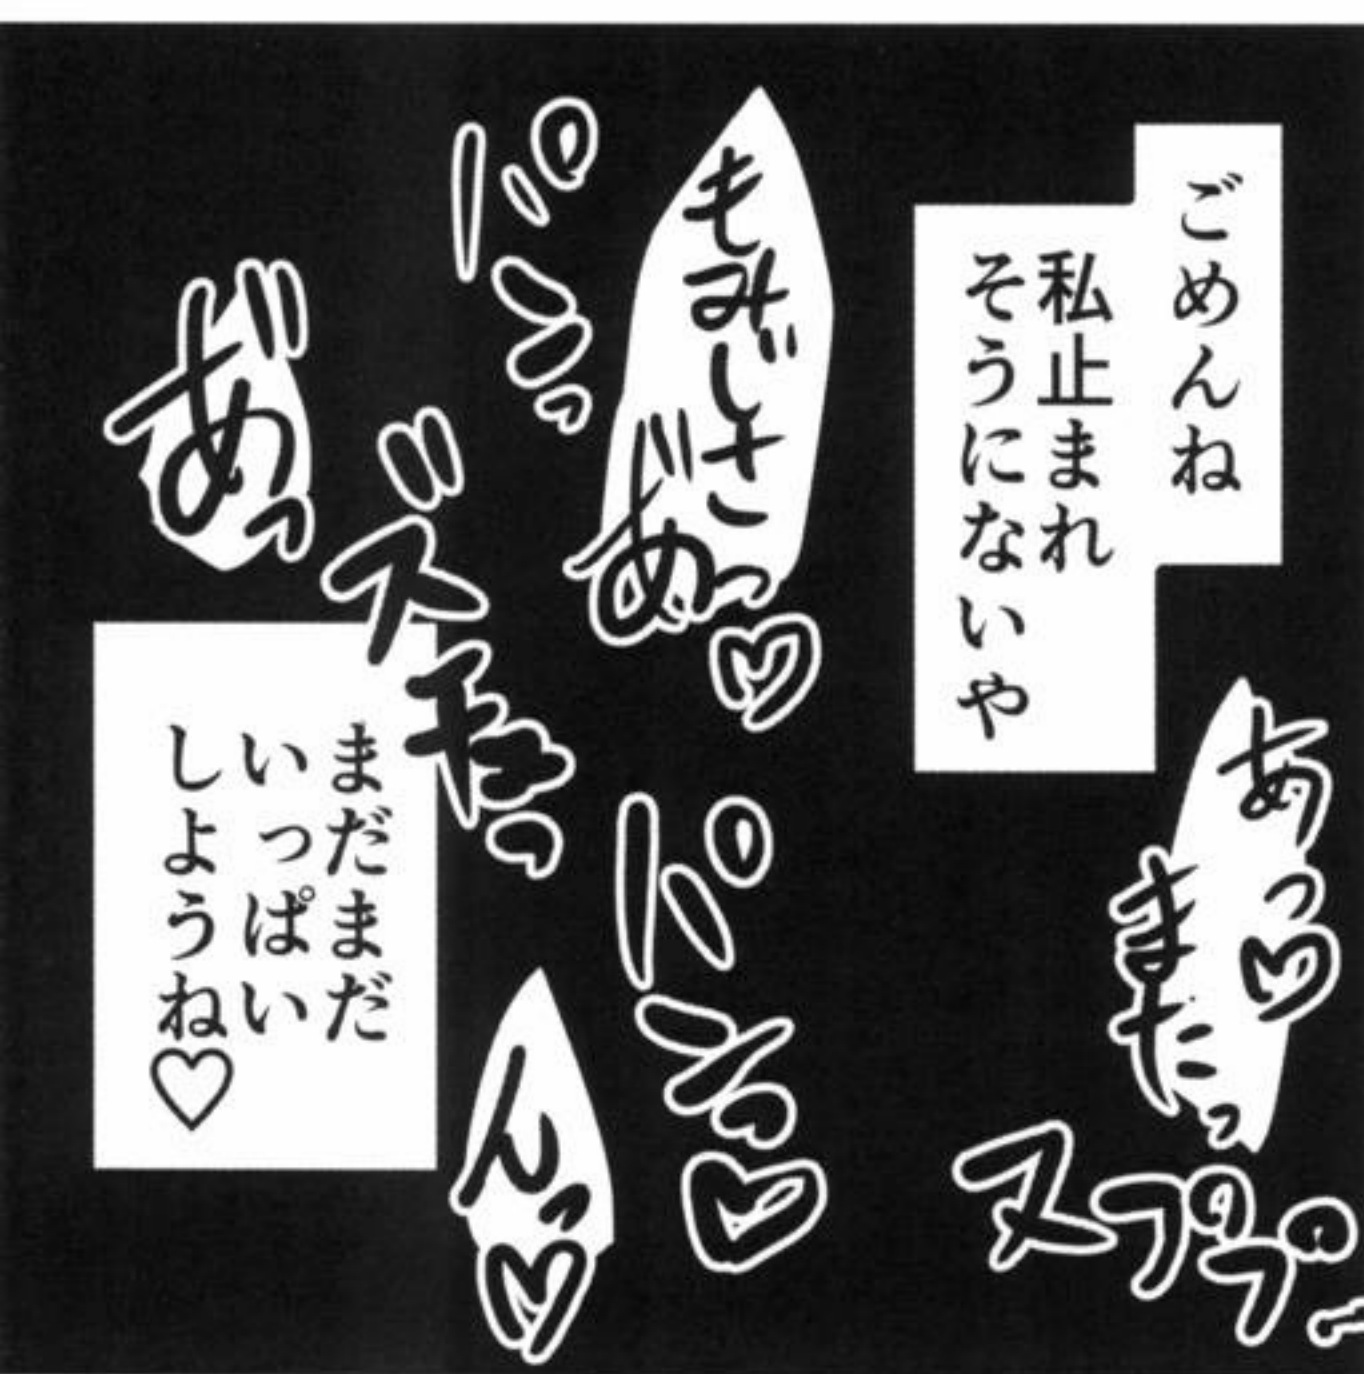 ごめんね
私止まれ
そうにないや
あっ♡
またっ
ヌプププ
もみじさ
あ゛っ♡
パンっ
パンっ♡
ズチュっ
あ゛っ
んっ♡
まだまだ
いっぱい
しようね♡